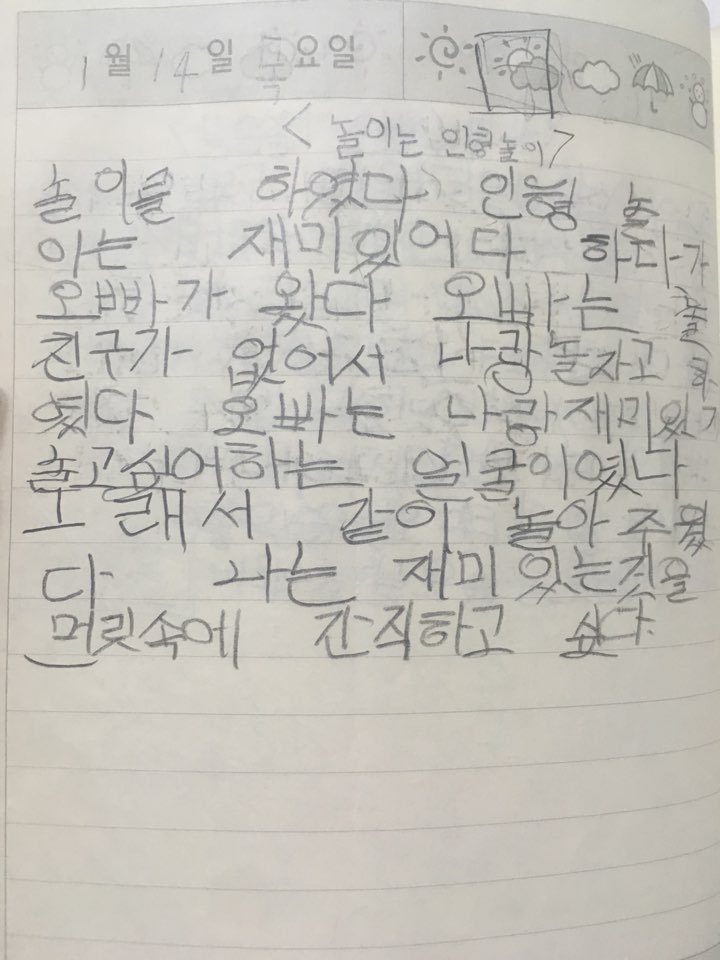 1월 14일 목요일
<놀이는 인형놀이>
놀이를 하였다 인형 놀
이는 재미있어다 하다가
오빠가 왔다 오빠는 놀
친구가 없어서 나랑 놀자고 하
였다 오빠는 나랑 재미있게
놀고싶어하는 얼굴이였다
그래서 같이 놀아 주웠
다 나는 재미있는것을
머릿속에 간직하고 싶다.